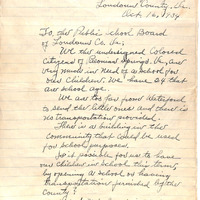 Loudoun County, Va.
Oct. 16, 1934
To, the Public School Board
of Loudoun Co. Va:
We the undersigned Colored
Citizens of Bowmas Springs, Va. are
very much in need of a school for
our Children. We have 24 that
are school age.
We are too far from Waterford
to send the little ones and there
is no transportation provided.
There is a building in the
community that could be used
for school purposes.
Is it possible for us to have
our children in school this term;
by opening a school or having
transportation furnished by the
County?